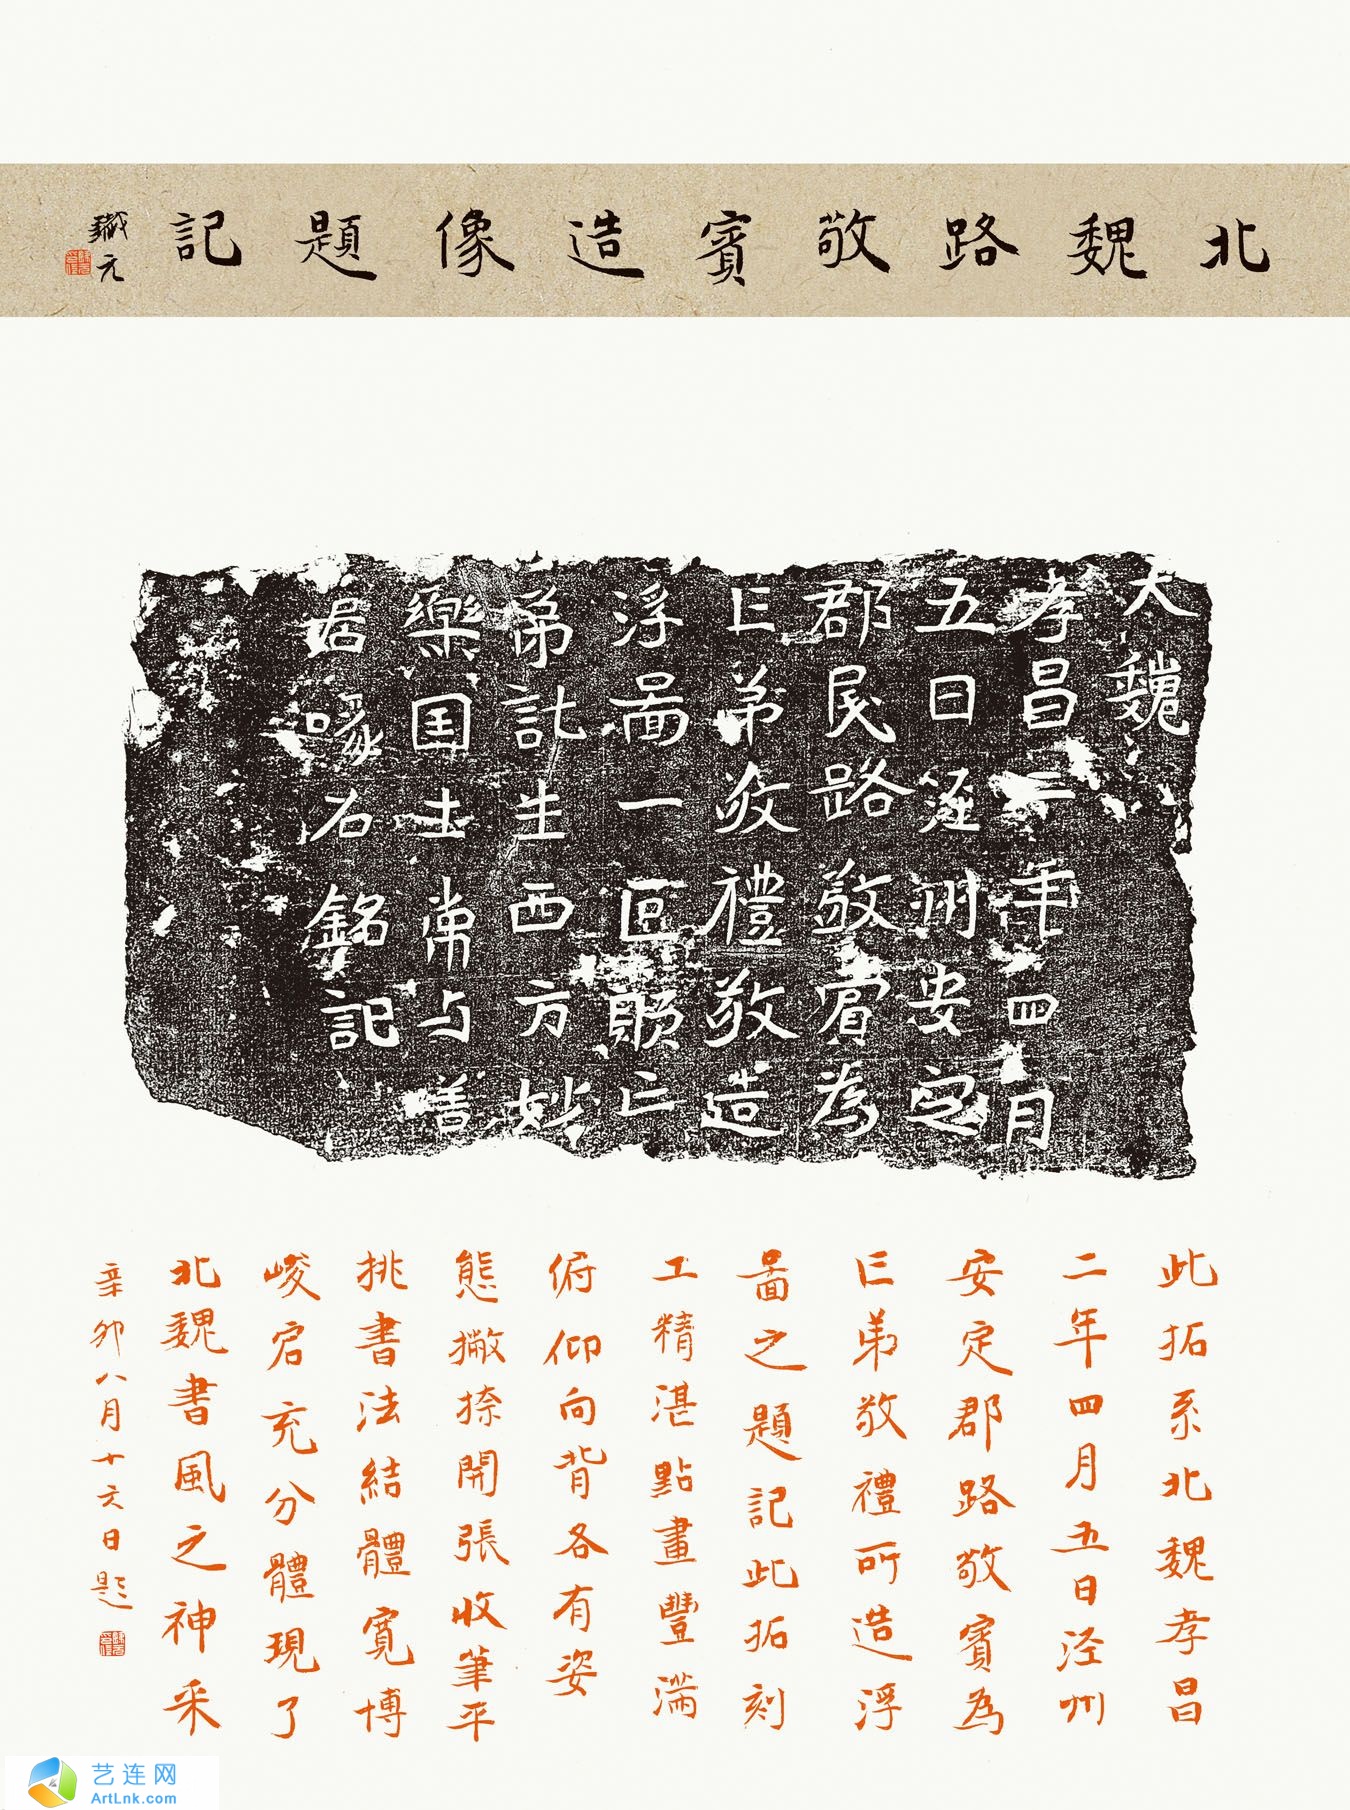 北魏路敬賓造像題記
元
大魏
孝昌二年四月
五日涇州安定
郡民路敬賓為
亡弟敬禮敬造
浮啚一區願亡
弟託生西方妙
樂国土常与善
居喙石銘記
此拓系北魏孝昌
二年四月五日泾州
安定郡路敬賓為
亡弟敬禮所造浮
啚之題記此拓刻
工精湛點畫豐滿
俯仰向背各有姿
態撇捺開張收筆平
挑書法結體寬博
峻宕充分體現了
北魏書風之神采
辛卯八月十六日題
艺连网
ArtLnk.com